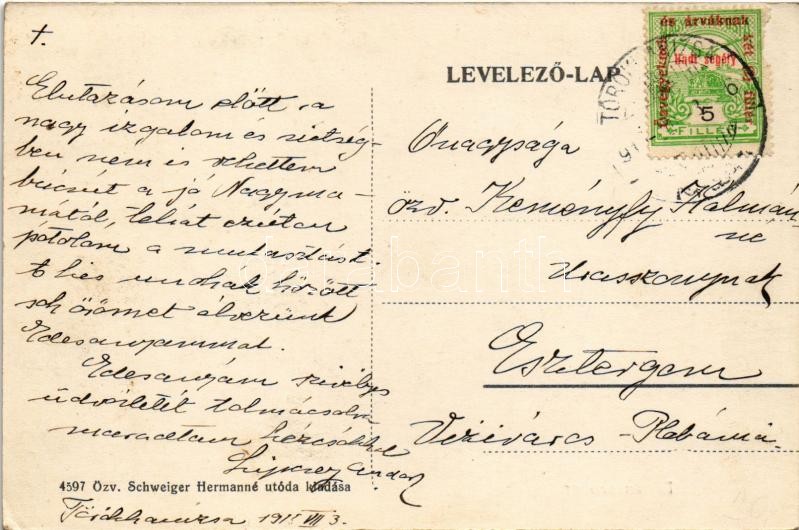 †.
Elutazásom előtt a
nagy izgalom és sietség-
ben nem is vehettem
búcsút a jó Nagyma-
mától, tehát ezúton
pótolom a mulasztást.
A kies unokák között
sok örömet élvezünk
Édesanyámmal.
Édesanyám szívélyes
üdvözletét tolmácsolva
maradtam kézcsókkal
Andor
4597 Özv. Schweiger Hermanné utóda kiadása
Törökkanizsa 191 VII 3.
LEVELEZŐ-LAP
Özvegyeknek és árváknak két (2) fillér
Hadi segély
5
FILLÉR
TÖRÖKKANIZSA
Önagysága
özv. Keményfy Kálmán-
né
Urasszonynak
Esztergom
Víziváros - Plébánia.